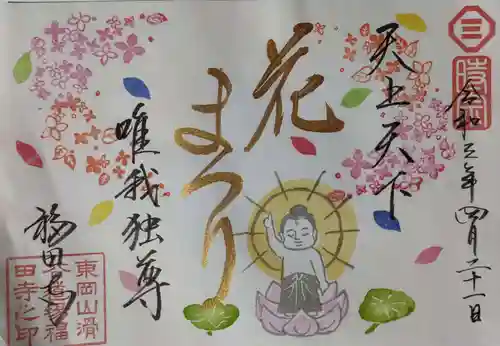 三
時宗
令和三年四月二十一日
天上天下
花
まつり
唯我独尊
福田寺
東岡山滑
福
田寺之印